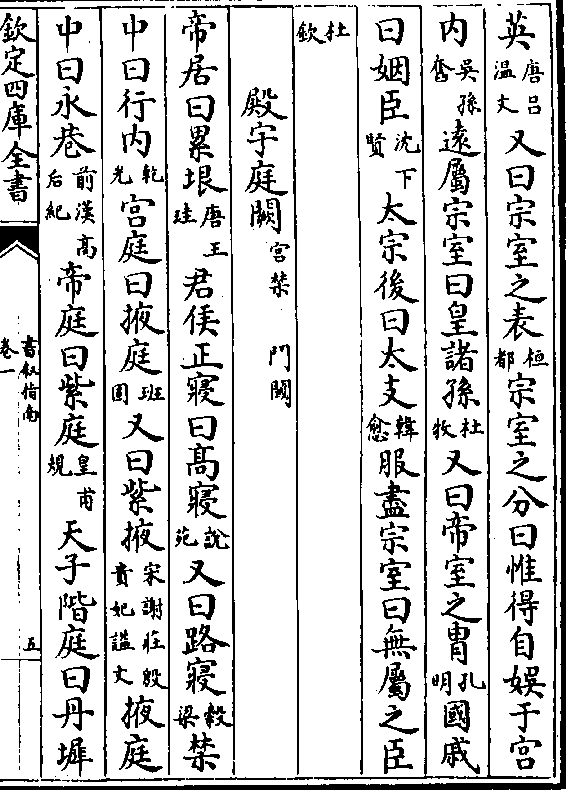 英唐呂溫文又曰宗室之表桓都宗室之分曰惟得自娛于宫
内吳孫奮遠屬宗室曰皇諸孫杜牧又曰帝室之胄孔明國戚
曰姻臣沈下賢太宗後曰太支韓愈服盡宗室曰無屬之臣
杜欽
殿宇庭闕宫禁 門闕
帝居曰累垠唐王珪君侯正寢曰髙寢說苑又曰路寢穀梁禁
中曰行内乾光宫庭曰掖庭班固又曰紫掖宋謝莊殷貴妃謚文掖庭
中曰永巷前漢高后紀帝庭曰紫庭皇甫規天子階庭曰丹墀
欽定四庫全書
書叙指南
卷一
五